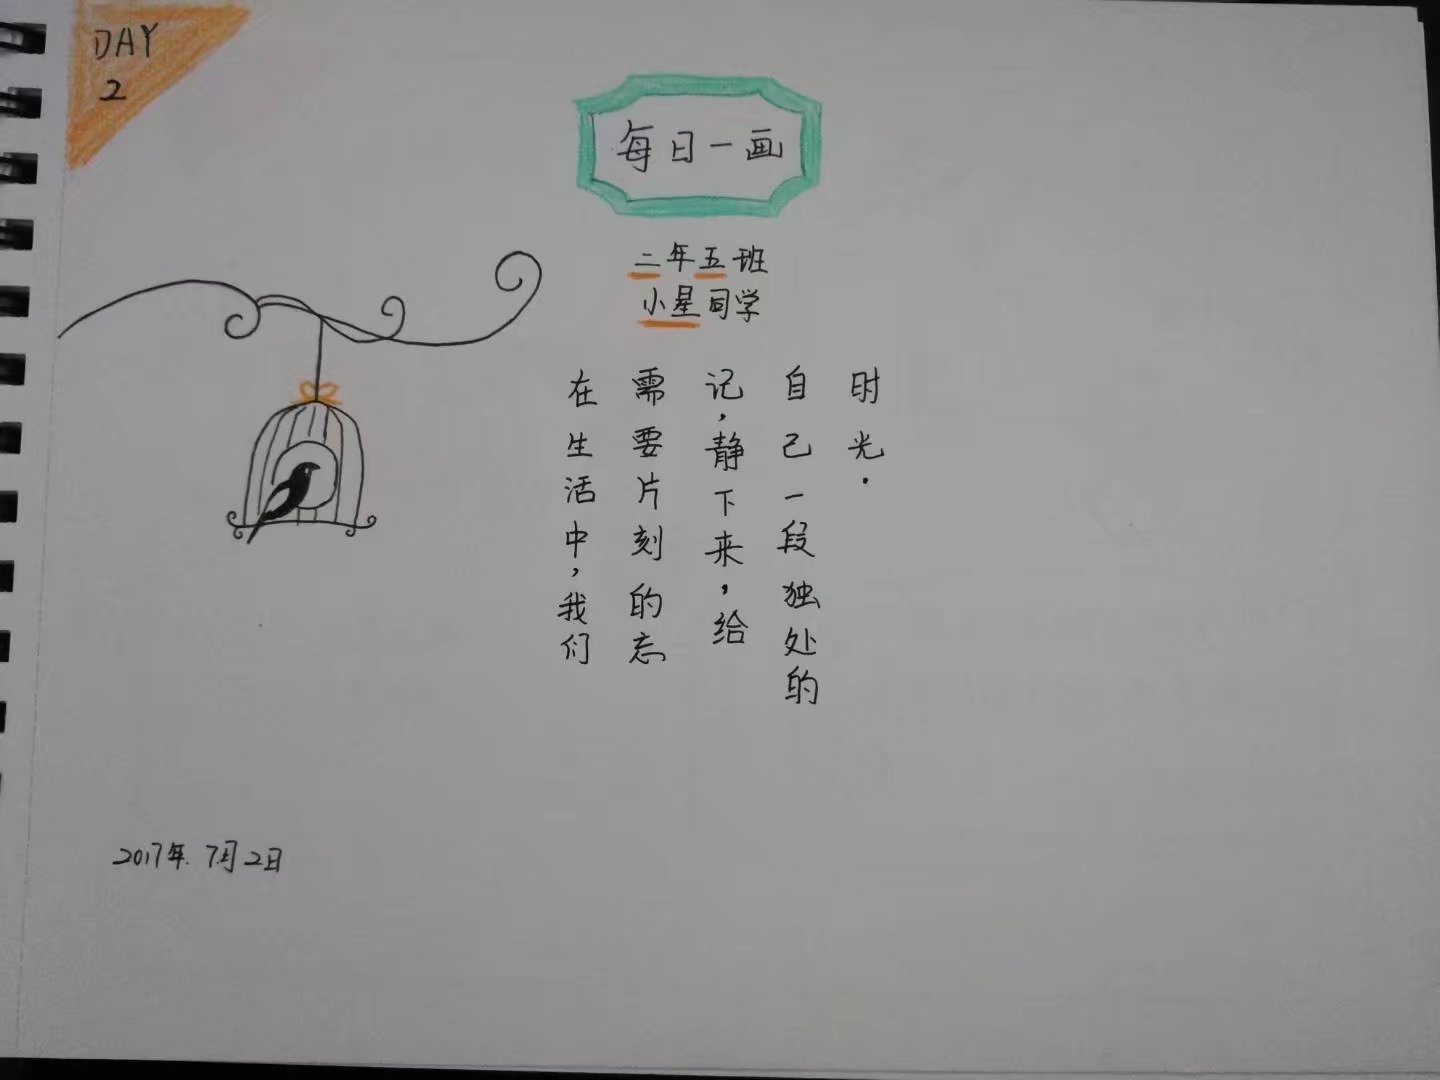 DAY
2
每日一画
二年五班
小星同学
在生活中,我们
需要片刻的忘
记,静下来,给
自己一段独处的
时光.
2017年.7月2日